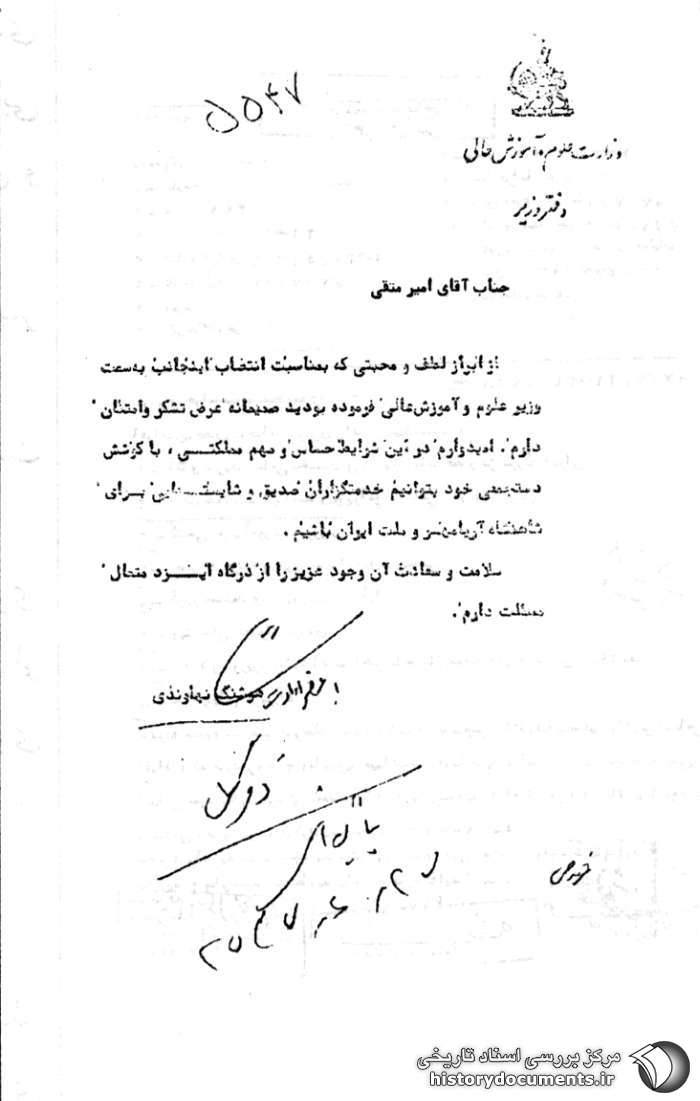 ۵۵۴۷
وزارت علوم و آموزش عالی
دفتر وزیر
جناب آقای امیر متقی
از ابراز لطف و محبتی که بمناسبت انتصاب اینجانب به‌سمت
وزیر علوم و آموزش‌عالی فرموده بودید صمیمانه عرض تشکر وامتنان
دارم. امیدوارم در این شرایط حساس و مهم مملکتی، با کوشش
دستجمعی خود بتوانیم خدمتگزاران صدیق و شایسته‌ای برای
شاهنشاه آریامهر و ملت ایران باشیم.
سلامت و سعادت آن وجود عزیز را از درگاه ایزد متعال
مسئلت دارم.
با عرض ارادت هوشنگ نهاوندی
بایگانی
خصوصی
مرکز بررسی اسناد تاریخی
historydocuments.ir